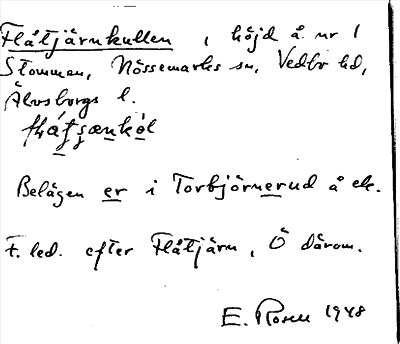 Flåtjärnkullen, höjd å nr 1
Stommen, Nössemarks sn, Vedbo hd,
Älvsborgs l.
Belägen er i Torbjörnerud å ek.
F. led. efter Flåtjärn, Ö därom.
E. Rosell 1948